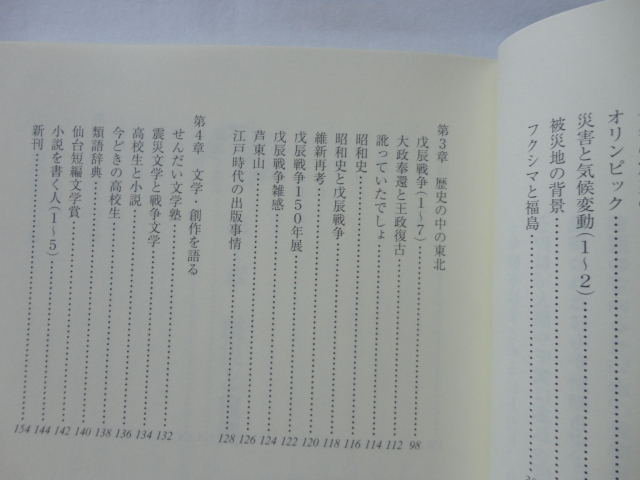 オリンピック
災害と気候変動(1〜2)
被災地の背景
フクシマと福島
第3章 歴史の中の東北
戊辰戦争(1〜7) 98
大政奉還と王政復古 112
訛っていたでしょ 114
昭和史 116
昭和史と戊辰戦争 118
維新再考 120
戊辰戦争150年展 122
戊辰戦争雑感 124
芦東山 126
江戸時代の出版事情 128
第4章 文学・創作を語る
せんだい文学塾 132
震災文学と戦争文学 134
高校生と小説 136
今どきの高校生 138
類語辞典 140
仙台短編文学賞 142
小説を書く人(1〜5) 144
新刊 154